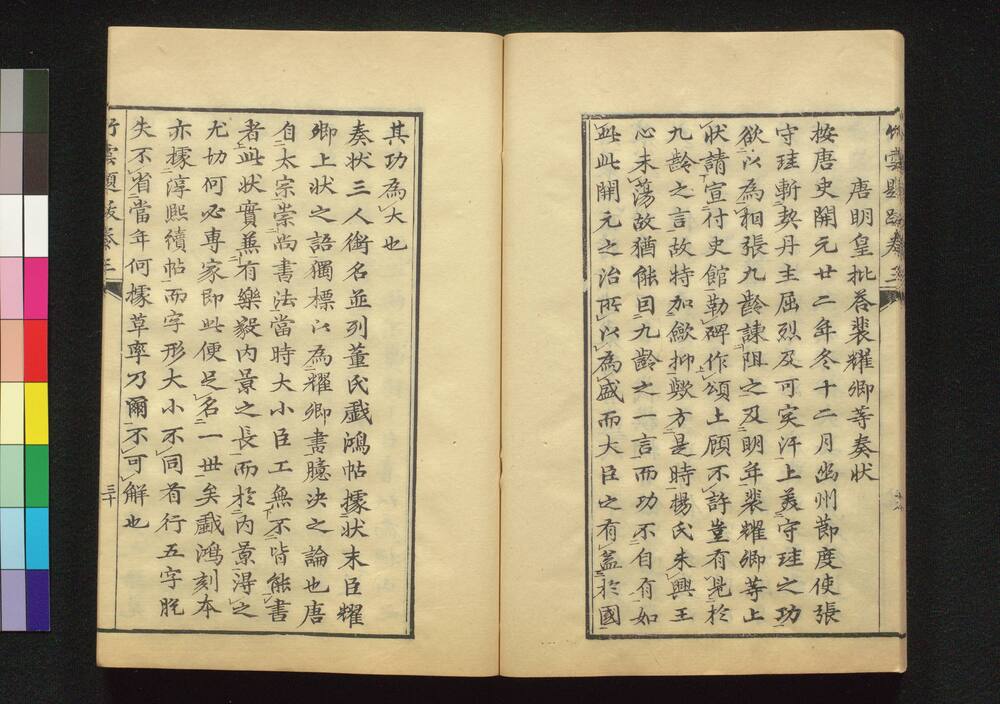 唐明皇批荅裴耀卿等奏状
按唐史開元廿二年冬十二月幽州節度使張
守珪斬契丹主屈烈及可突汗上美守珪之功
欲以為相張九齡諫阻之及明年裴耀卿等上
状請宣付史館勒碑作頌上顧不許豈有見於
九齡之言故特加歛抑歟方是時楊氏未興王
心未蕩故猶能回九齡之一言而功不自有如
此此開元之治所以為盛而大臣之有益於國
其功為大也
奏状三人銜名並列董氏戯鴻帖據状末臣耀
卿上状之語獨標以為耀卿書臆決之論也唐
自太宗崇尚書法當時大小臣工無不皆能書
者此状實兼有樂毅内景之長而於内景淂之
尤切何必專家即此便足名一世矣戯鴻刻本
亦據淳熙續帖而字形大小不同首行五字脱
失不省當年何據草率乃爾不可解也
竹雲題跋卷三
三十